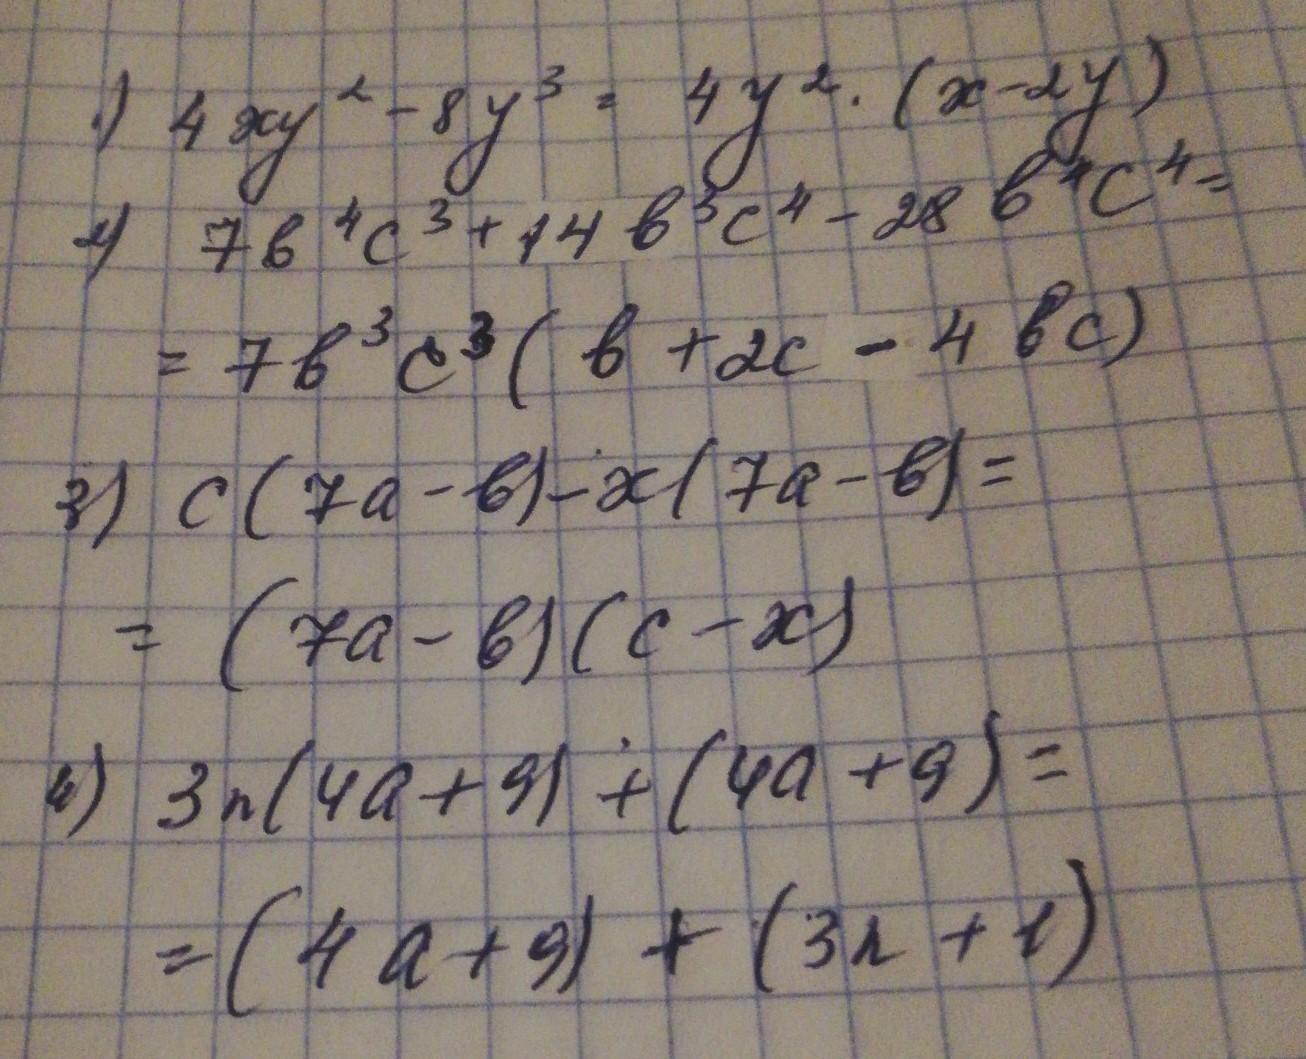 1) 4xy² - 8y³ = 4y² · (x - 2y)
2) 7b⁴c³ + 14b³c⁴ - 28b⁴c⁴ =
= 7b³c³(b + 2c - 4bc)
3) c(7a - b) - x(7a - b) =
= (7a - b)(c - x)
4) 3n(4a + 9) + (4a + 9) =
= (4a + 9) + (3n + 1)